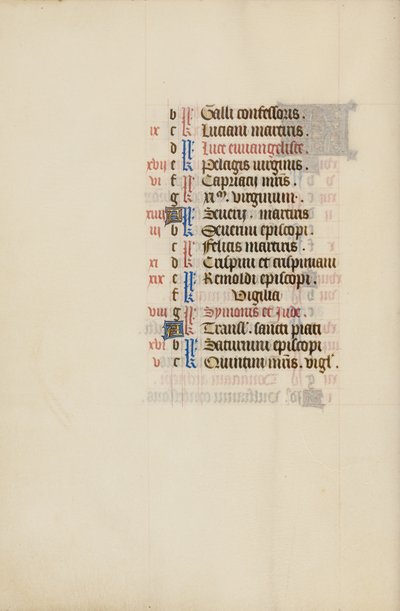 b kl Galli confessoris.
ix c kl Luciani martiris.
d kl Luce euuangeliste.
xvii e kl Pelagie uirginis.
vi f kl Capriacij mris.
g kl xi virginum.
xiiii A kl Seuerij. martiris
iii b kl Seuerini episcopi.
c kl Felicis martiris.
xi d kl Crispini et crispiniani
xix e kl Remoldi episcopi.
f kl Vigilia
viii g kl Symonis et Jude.
A kl Transl. sancti piati
xvi b kl Saturnini episcopi
v c kl Quintini mris. vigl.